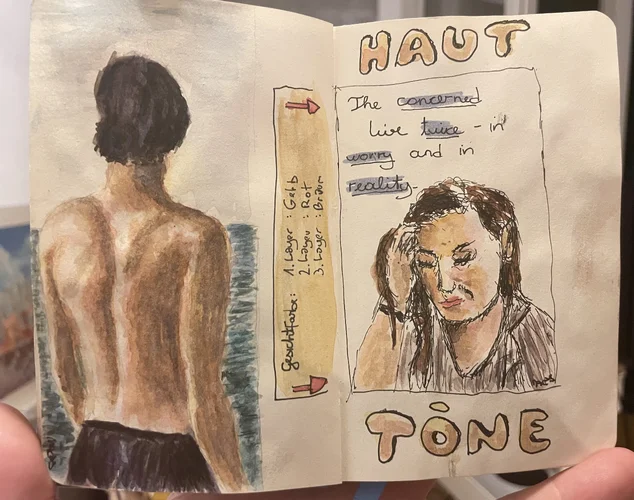 Gesichtfarbe:
1. Layer : Gelb
2. Layer : Rot
3. Layer : Braun
HAUT
The concerned
live twice - in
worry and in
reality.
TÒNE